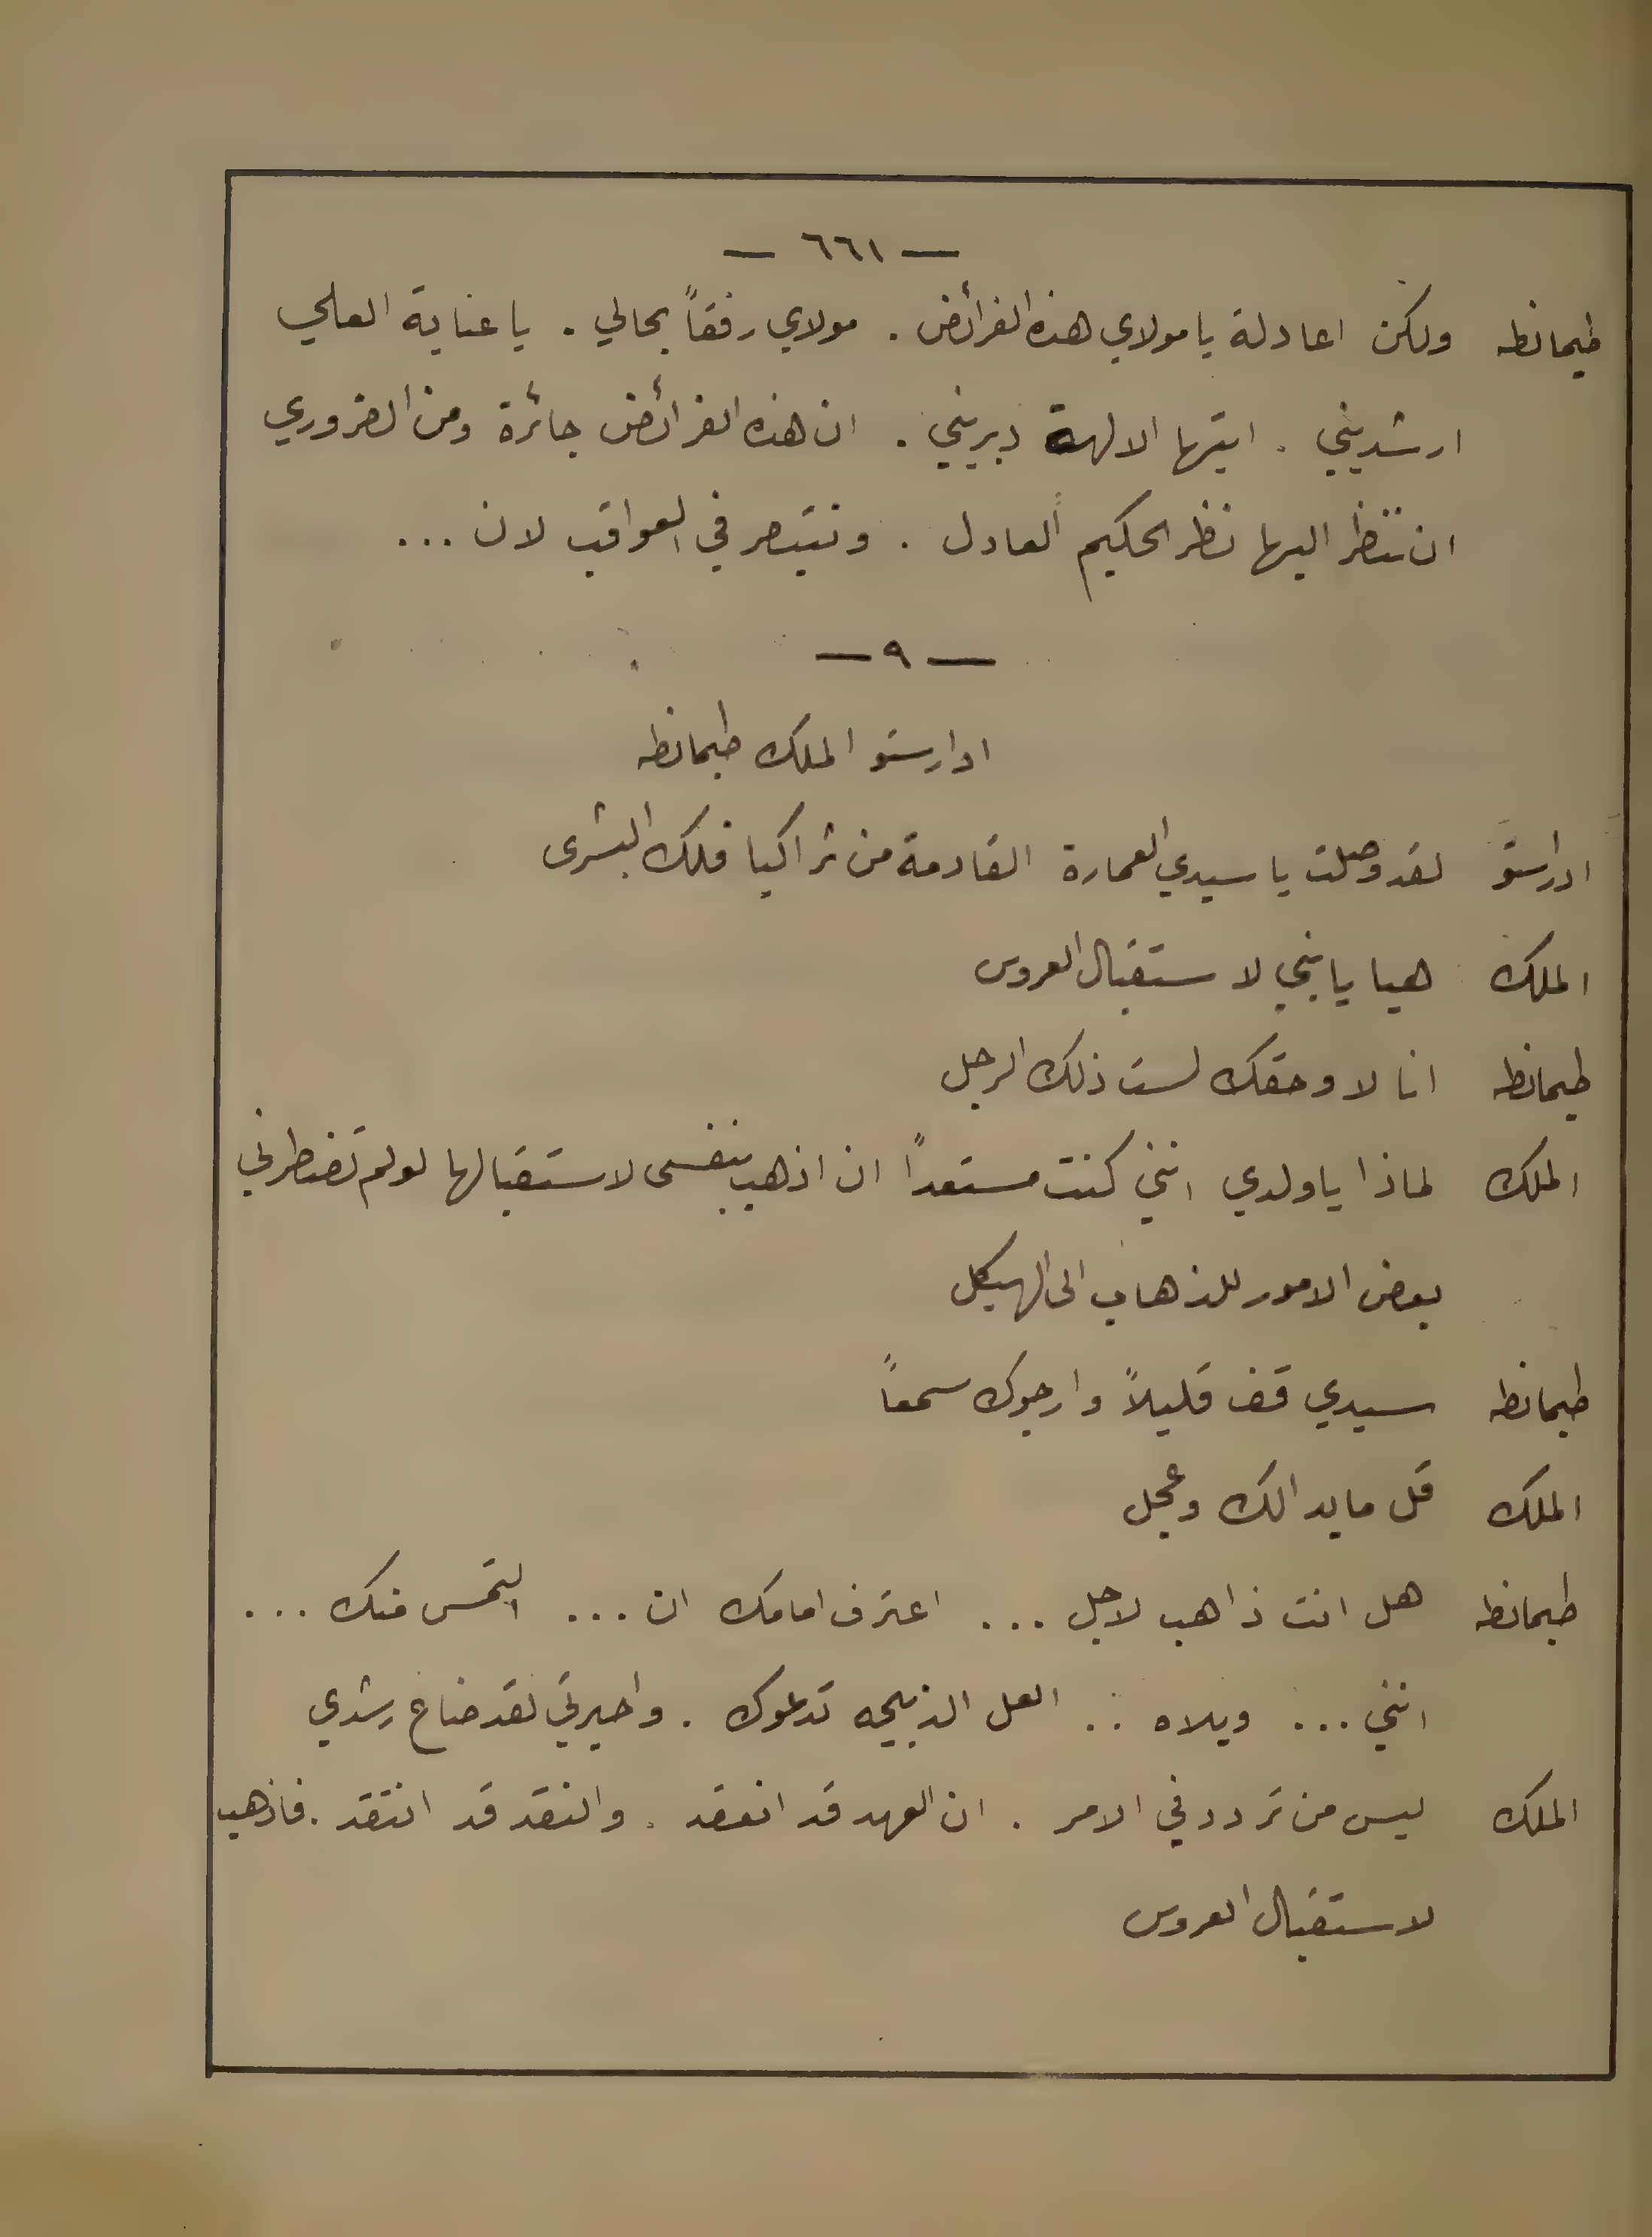 — ٦٦١ —
طيمانطه ولكن اعادلة يا مولاي هذه الفرائض . مولاي رفقاً بحالي . يا عناية العلي
ارشديني . ايتها الالهة دبريني . ان هذه الفرائض جائرة ومن الضروري
ان ننظر اليها نظر الحكيم العادل . ونتبصر في العواقب لان ...
— ٩ —
ادارستو الملك طيمانطه
ادراستو لقد وصلت يا سيدي العمارة القادمة من ثراكيا فلك البشرى
الملك هيا يا بني لاستقبال العروس
طيمانطه انا لا وحقك لست ذلك الرجل
الملك لماذا يا ولدي انني كنت مستعداً ان اذهب بنفسى لاستقبالها لو لم تضطرني
بعض الامور للذهاب الى الهيكل
طيمانطه سيدي قف قليلاً وارجوك سمعاً
الملك قل ما بدا لك وعجل
طيمانطه هل انت ذاهب لاجل ... اعترف امامك ان ... التمس منك ...
انني ... ويلاه .. العل الذبيحه تدعوك . واحيرتي لقد ضاع رشدي
الملك ليس من تردد في الامر . ان العهد قد انعقد . والنقد قد انتقد . فاذهب
لاستقبال العروس